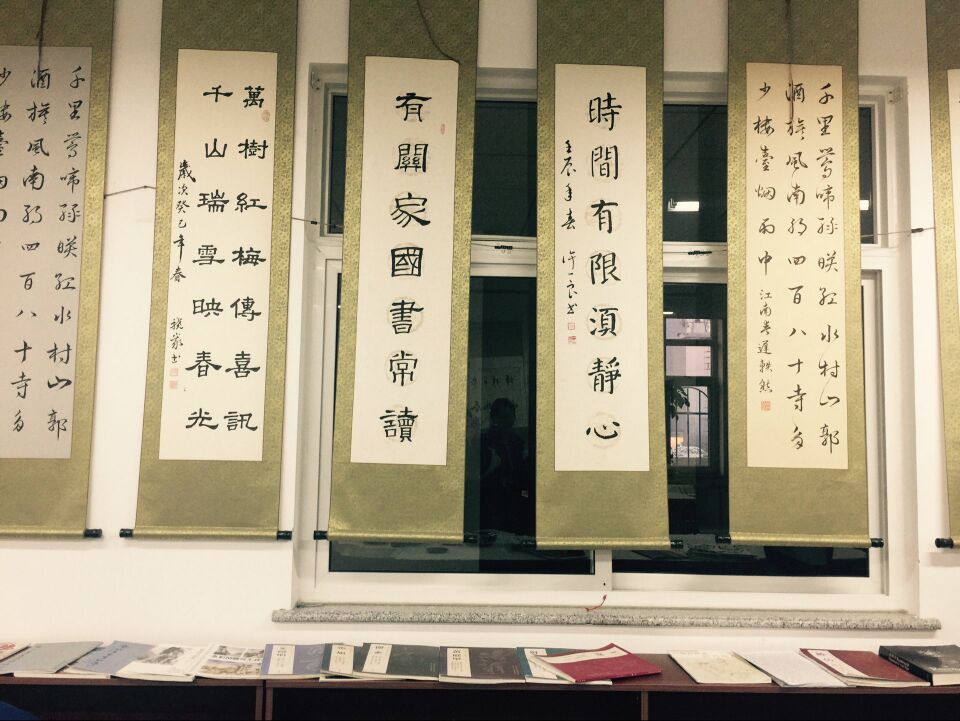 千里鶯啼緑映红水村山郭
酒旗風南朝四百八十寺多
少樓臺烟雨中
江南春
時間有限須靜心
壬辰年春
有關家國書常讀
萬樹紅梅傳喜訊
千山瑞雪映春光
歲次癸巳年春
千里鶯啼緑映红水村山郭
酒旗風南朝四百八十寺多
少樓臺烟雨